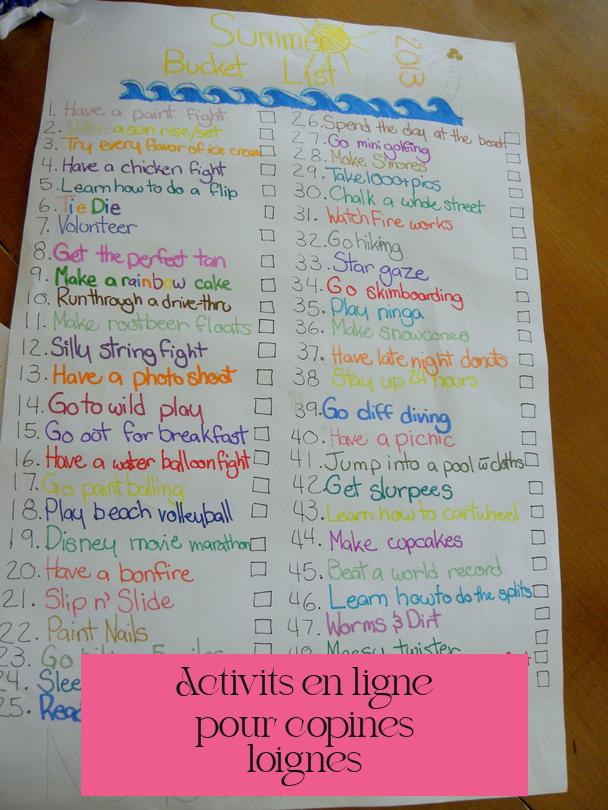 Summer 2013
Bucket List
1. Have a paint fight
2. Watch a sun rise/set
3. Try every flavor of ice cream
4. Have a chicken fight
5. Learn how to do a flip
6. Tie Die
7. Volunteer
8. Get the perfect tan
9. Make a rainbow cake
10. Run through a drive-thru
11. Make rootbeer floats
12. Silly string fight
13. Have a photo shoot
14. Go to wild play
15. Go out for breakfast
16. Have a water balloon fight
17. Go paintballing
18. Play beach volleyball
19. Disney movie marathon
20. Have a bonfire
21. Slip n' Slide
22. Paint Nails
23. Go
24.
25.
26. Spend the day at the beach
27. Go mini golfing
28. Make S'mores
29. Take 1000+ pics
30. Chalk a whole street
31. Watch Fire works
32. Go hiking
33. Star gaze
34. Go skimboarding
35. Play ninga
36. Make snowcones
37. Have late night donuts
38 Stay up 24 hours
39. Go cliff diving
40. Have a picnic
41. Jump into a pool w cloths
42. Get slurpees
43. Learn how to cartwheel
44. Make cupcakes
45. Beat a world record
46. Learn how to do the splits
47. Worms & Dirt
48. Messy twister
Activits en ligne
pour copines
loignes